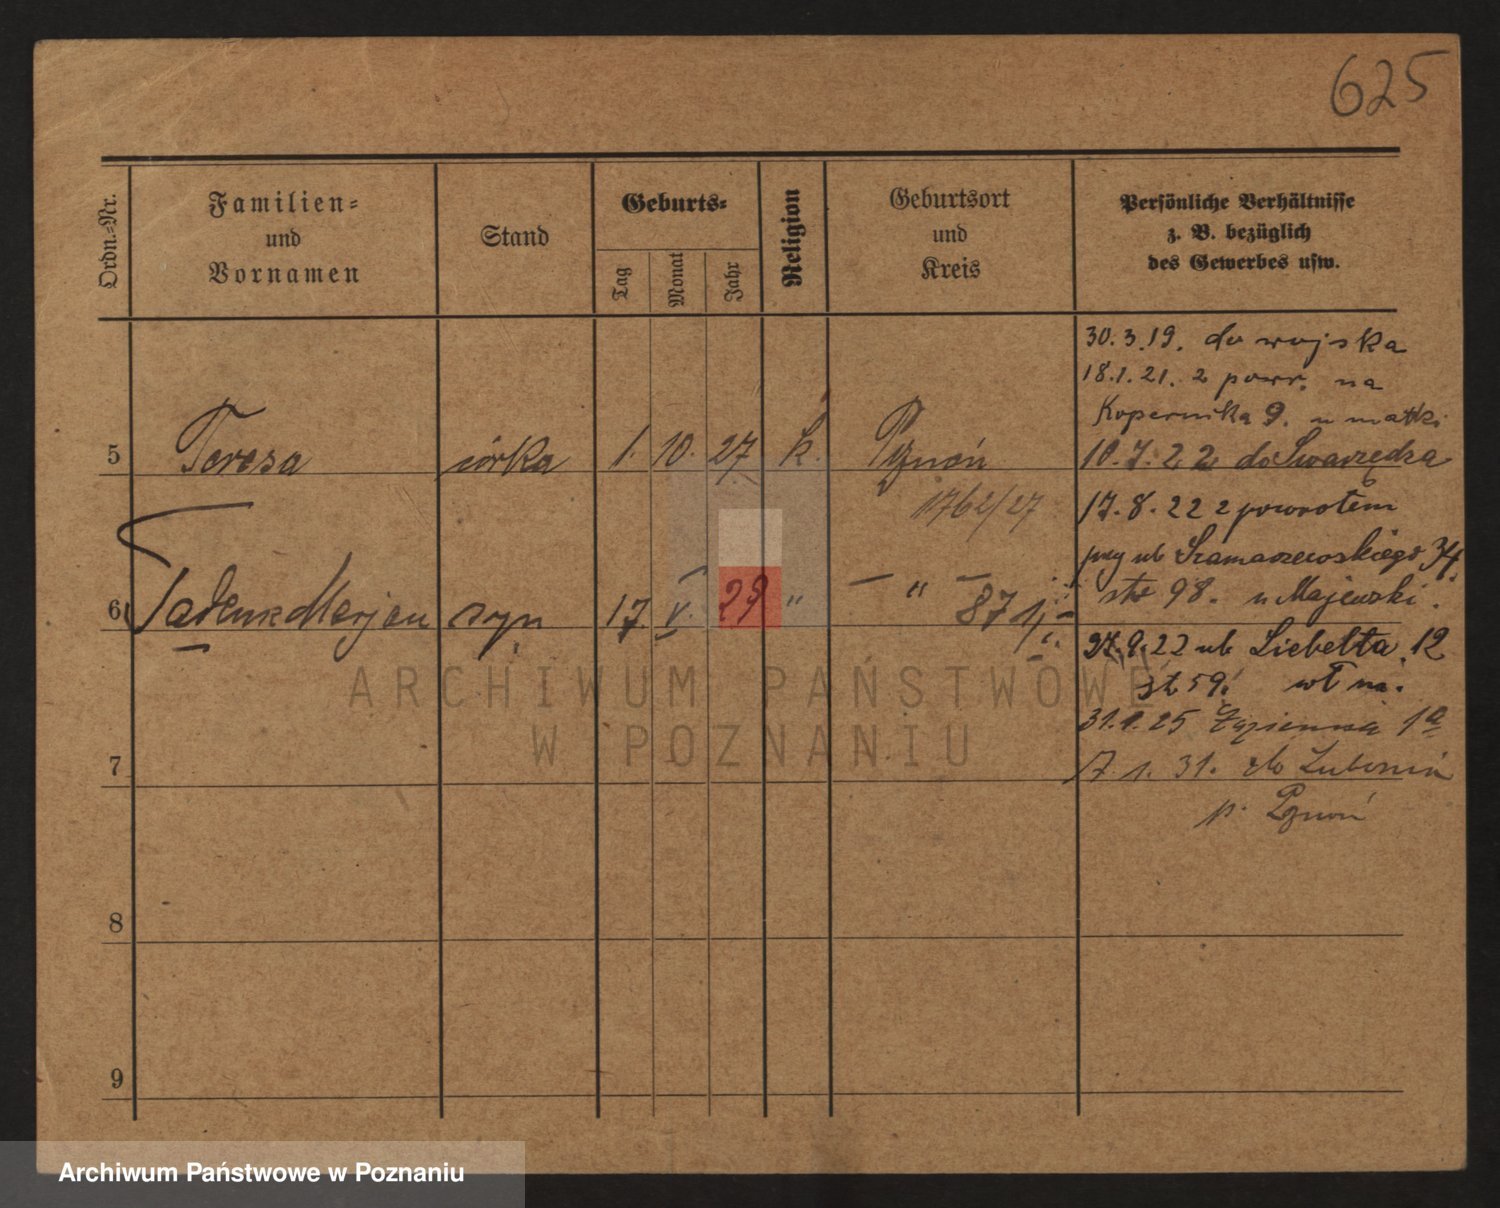 625
Ordn.-Nr.
Familien-
und
Vornamen
Stand
Geburts-
Tag
Monat
Jahr
Religion
Geburtsort
und
Kreis
Persönliche Verhältnisse
z. B. bezüglich
des Gewerbes usw.
30.3.19. do wojska
18.1.21. z powr. na
Kopernika 9. u matki
5 Teresa córka 1. 10. 27 k. Pznań 10.7.22 do Swarzędza
1762/27
17.8.22 z powrotem
przy ul Szamarzewskiego 34
str 98. u Majewski.
6 Tadeusz Marjan syn 17. V. 29 " — " — 871
27.9.22 ul Liebelta 12
st 59. wł m.
31.1.25 Łazienna 1a
7
17.1.31. do Lubonia
p. Pznań
8
9
ARCHIWUM PAŃSTWOWE
W POZNANIU
Archiwum Państwowe w Poznaniu